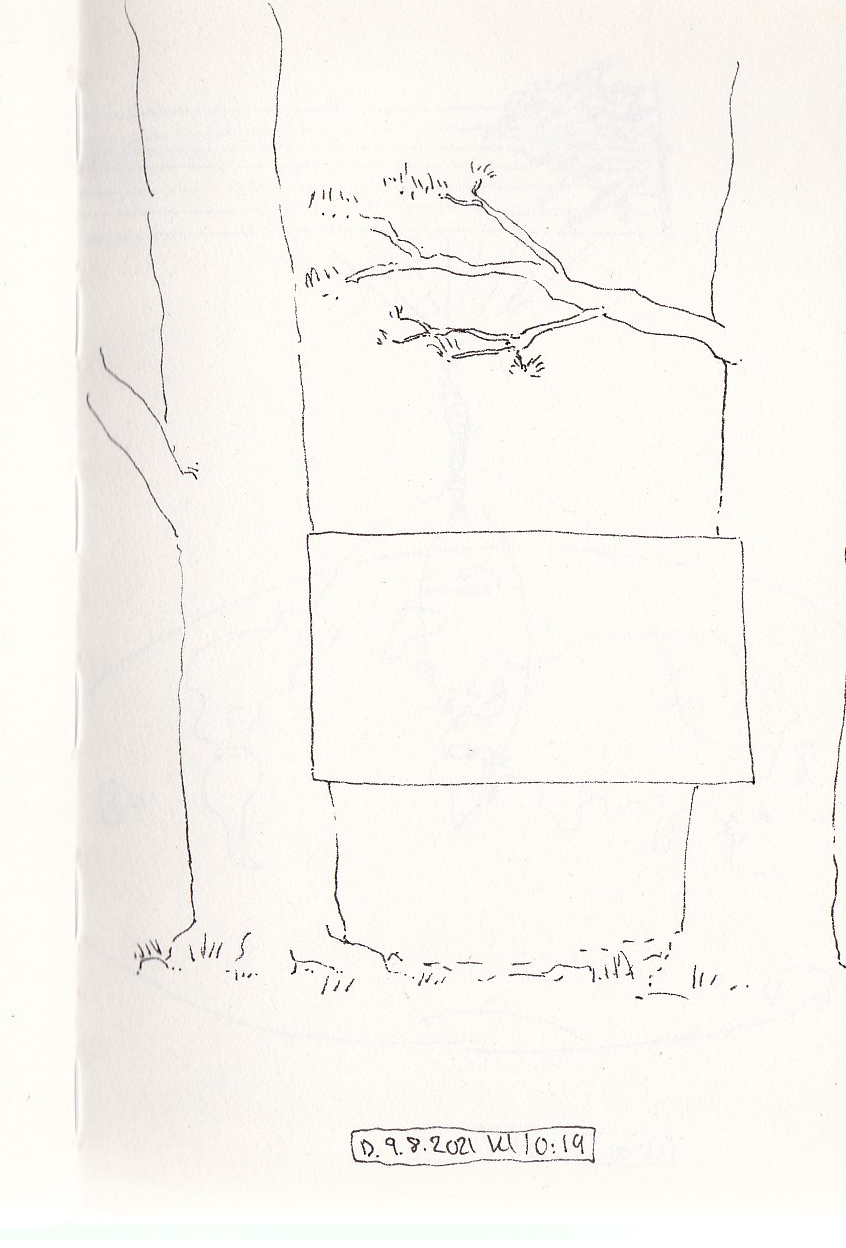 D. 9.8.2021 kl 10:19